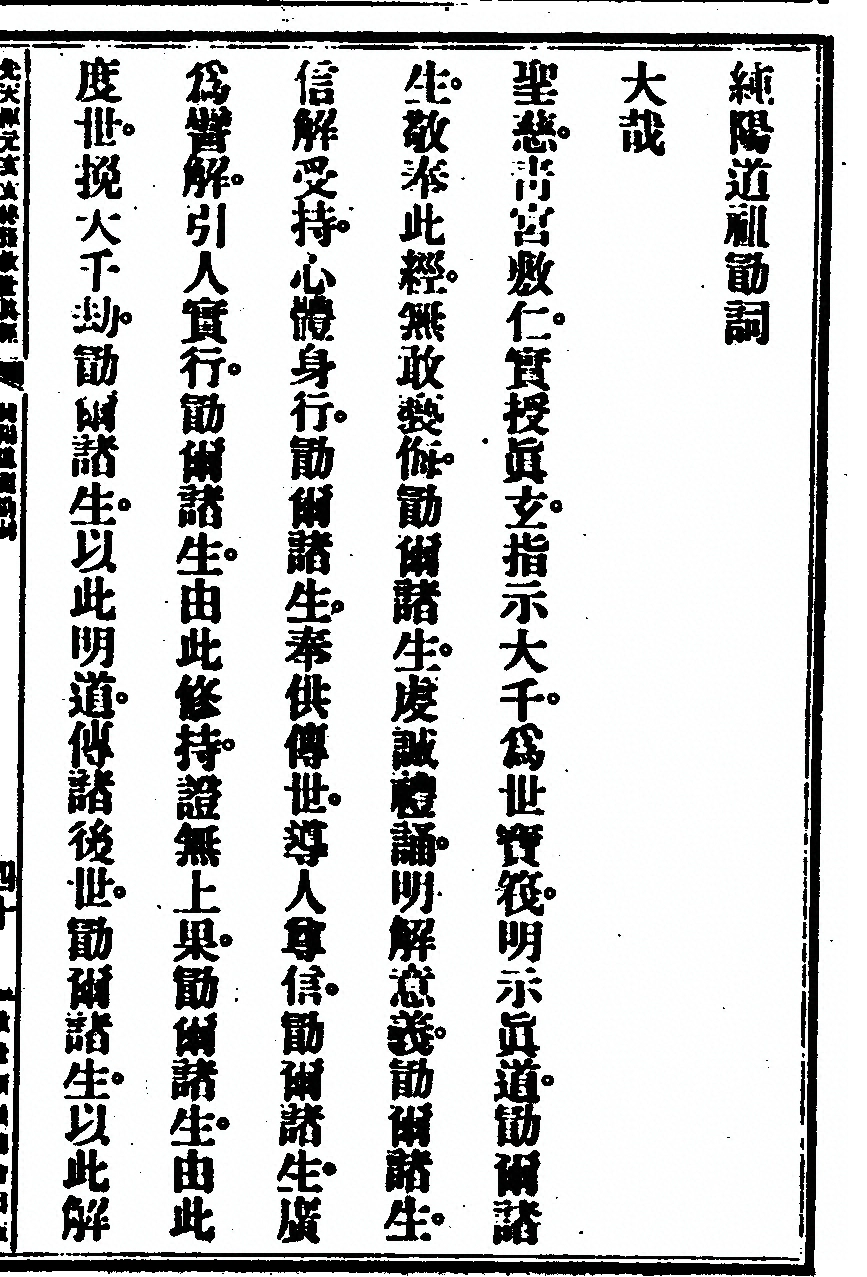 純陽道祖勖詞
大哉
聖慈。青宮敷仁。實授眞玄。指示大千。爲世寶筏。明示眞道。勖爾諸
生。敬奉此經。無敢褻侮。勖爾諸生。虔誠禮誦。明解意義。勖爾諸生。
信解受持。心體身行。勖爾諸生。奉供傳世。導人尊信。勖爾諸生。廣
爲譬解。引人實行。勖爾諸生。由此修持。證無上果。勖爾諸生。由此
度世。挽大千劫。勖爾諸生。以此明道。傳諸後世。勖爾諸生。以此解
四十